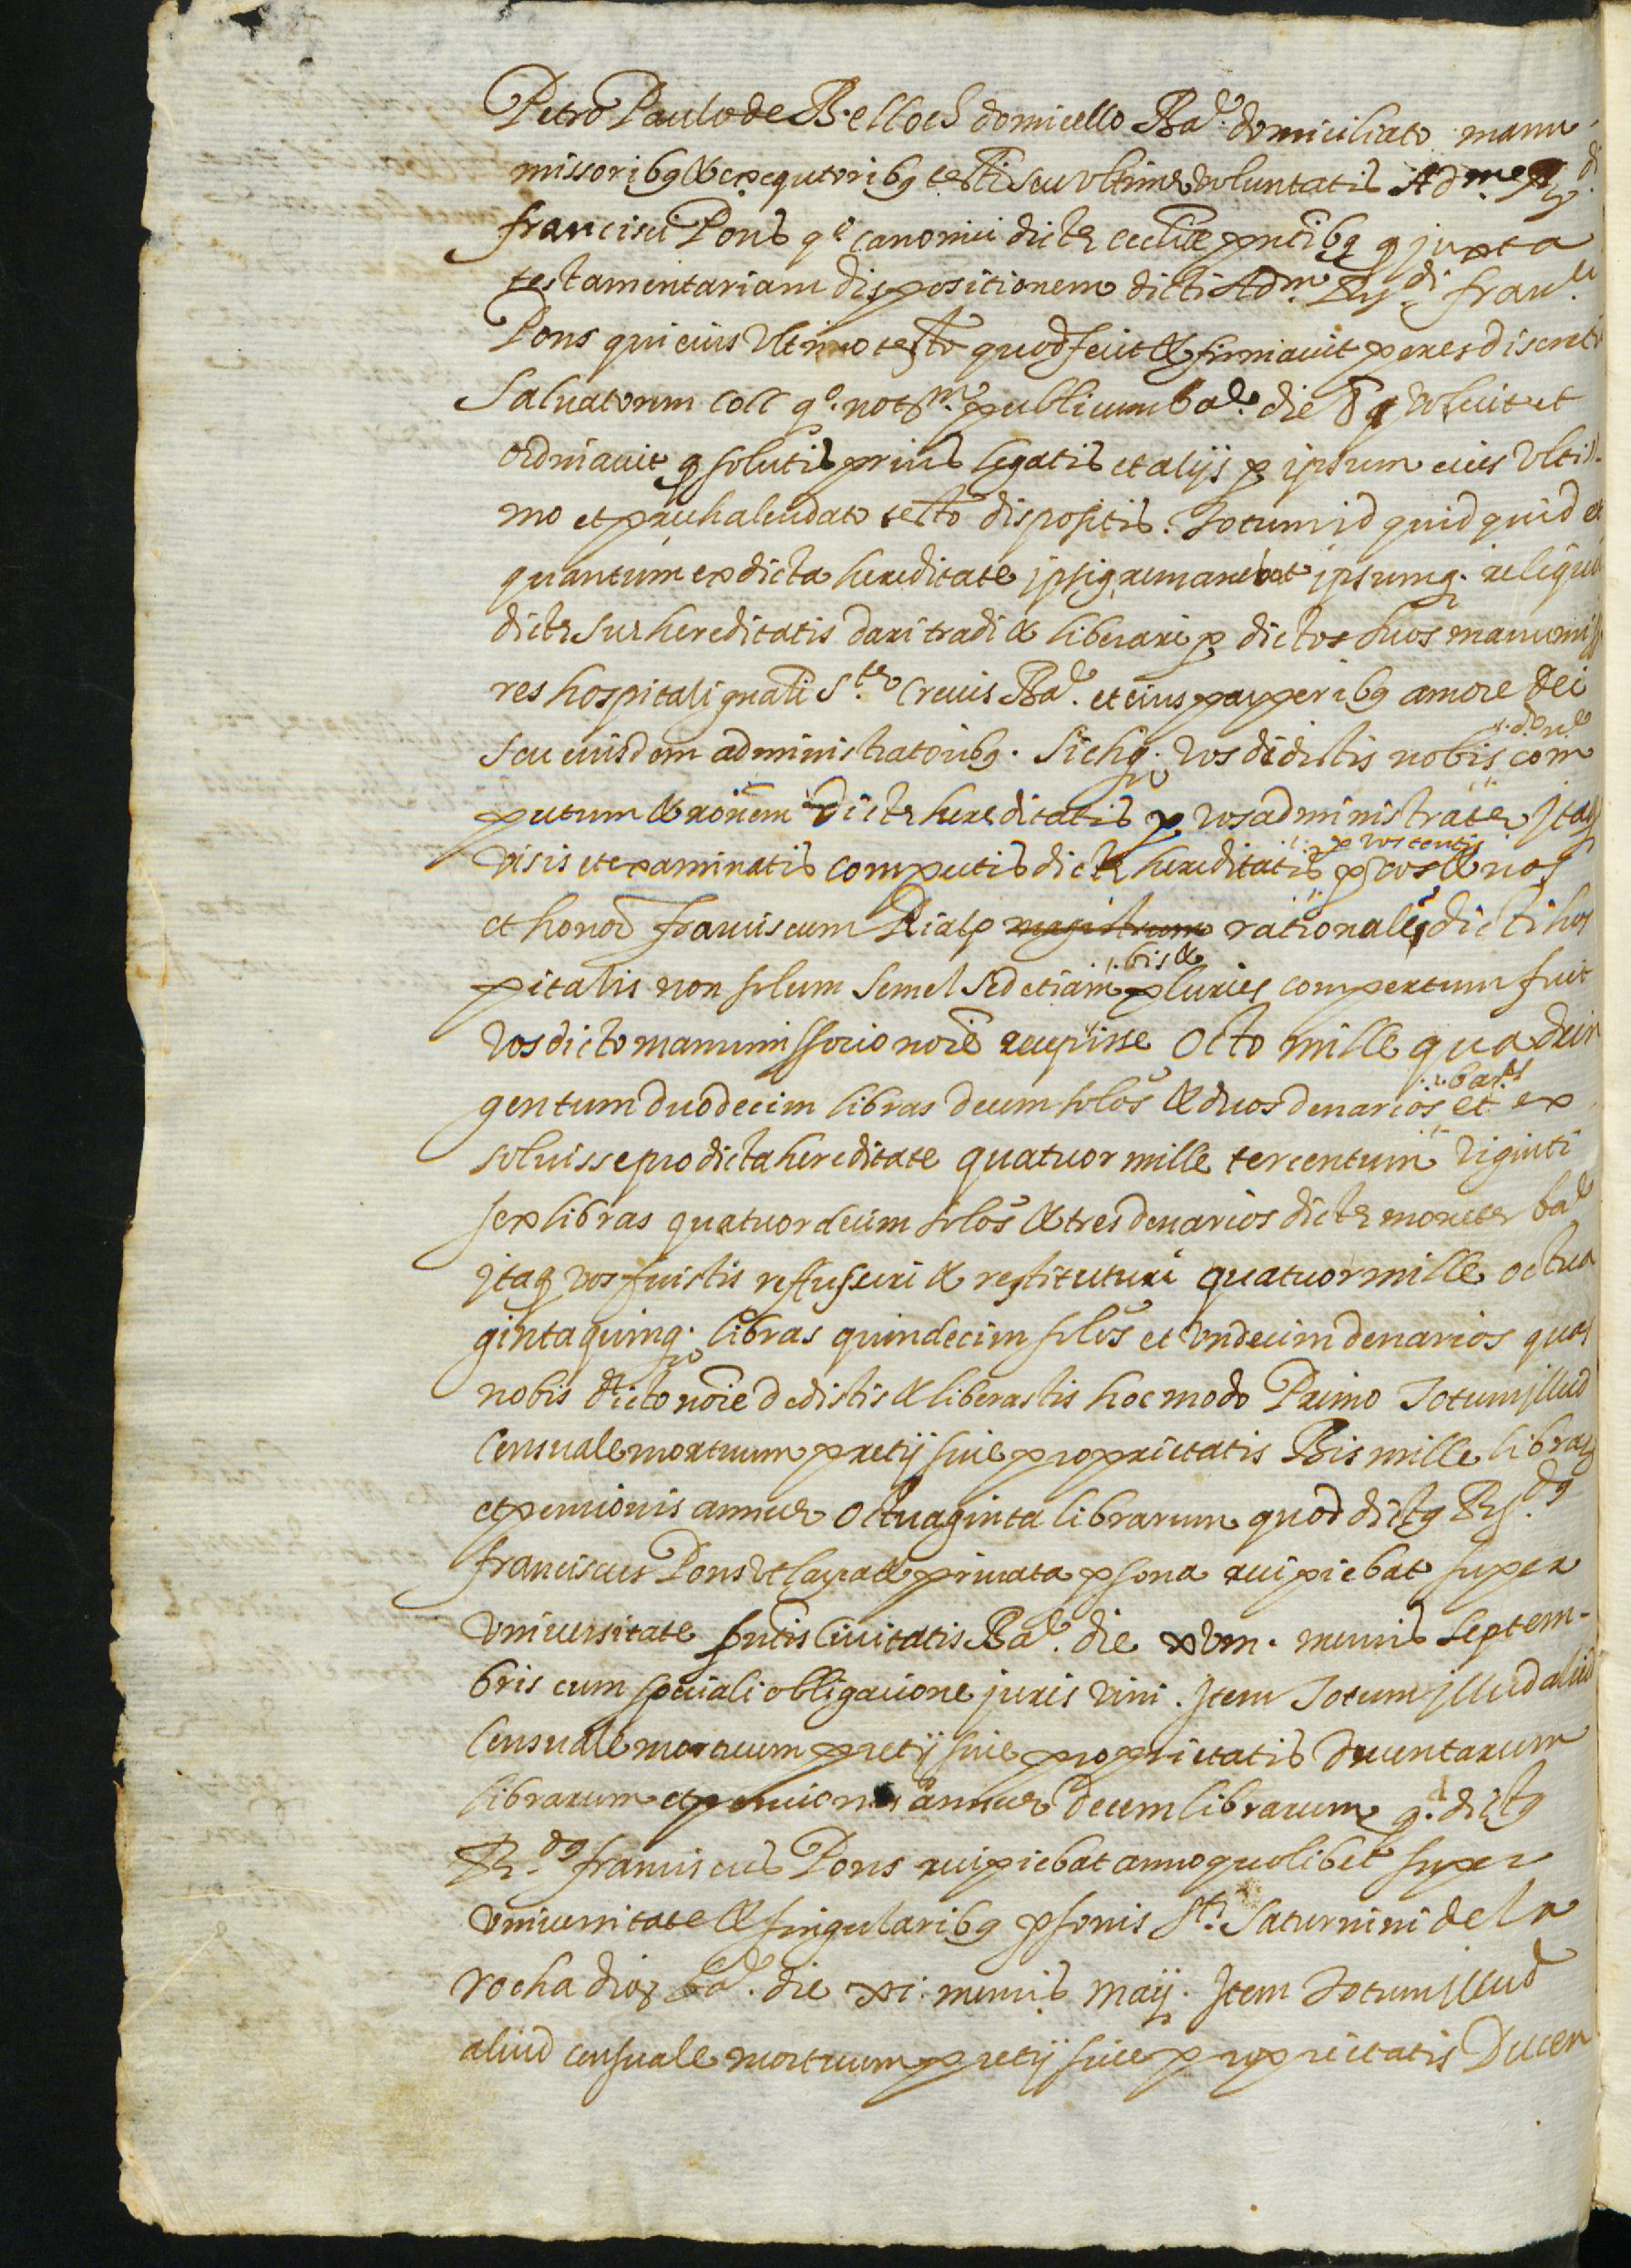 Petro Paulo de Belloch domicello Bar. domiciliato manu
missoribq & exequutoribq testi seu ultime voluntatis Adm. Rx.di
francisci Pons q.e canonici dicte ecclie pntibq q juxta
testamentariam dispositionem dicti Adm. Rx.di franci
Pons qui cum ultimo testo quod fecit & firmavit penes discret
Salvatorem Coll q.e not.m publicum bar. die 8 voluit et
ordinavit q solutis prius legatis et alijs p ipsum eius ulti
mo et prechalendato testo dispositis. Totum id quidquid et
quantum ex dicta hereditate ipsiq remanebat ipsumq. reliquu
dicte sue hereditatis dari tradi & liberari p dictos suos manumisso
res hospitali gnali S.te Crucis Bar. et eius pauperibq amore dei
seu eiusdem administratoribq. Sichq. vos dedistis nobis com
putum & roñem dicte hereditatis p vos administrate jtaq
p vos center
visis et examinatis computis dicte hereditatis p vos & nos
et honor. franciscum Rialp magistrum rationalem dicti hos
bis &
pitalis non solum semel sed etiam pluries compertum fuit
vos dicto manumissorio noie recepisse Octo mille quadrin
bar.s
gentum duodecim libras decem solos & duos denarios et ex
soluisse pro dicta hereditate quatuor mille tercentum viginti
sex libras quatuordecim solos & tres denarios dicte monete bar
jtaq vos fuistis reffusuri & restituturi quatuor mille octua
ginta quinq. libras quindecim solos et undecim denarios quas
nobis dicto noie dedistis & liberastis hoc modo Primo Totum jllud
Censuale mortuum pretij sive proprietatis Bis mille libras
et pensionis annue Octuaginta librarum quod dictq Rx.dq
franciscus Pons ut laica & privata psona recipiebat super
universitate pntis Civitatis Bar. die xvm. mensis Septem-
bris cum speciali obligacione juris vini. Jtem Totum jllud aliud
Censuale mortuum pretij sive proprietatis Ducentarum
librarum et pensionis annue Decem librarum q.d dictq
R.dq franciscus Pons recipiebat anno quolibet super
universitate & singularibq psonis S.ti Saturnini de la
rocha dioc. bar. die xi. mensis maij. Jtem Totum jllud
aliud censuale mortuum pretij sive proprietatis Ducen